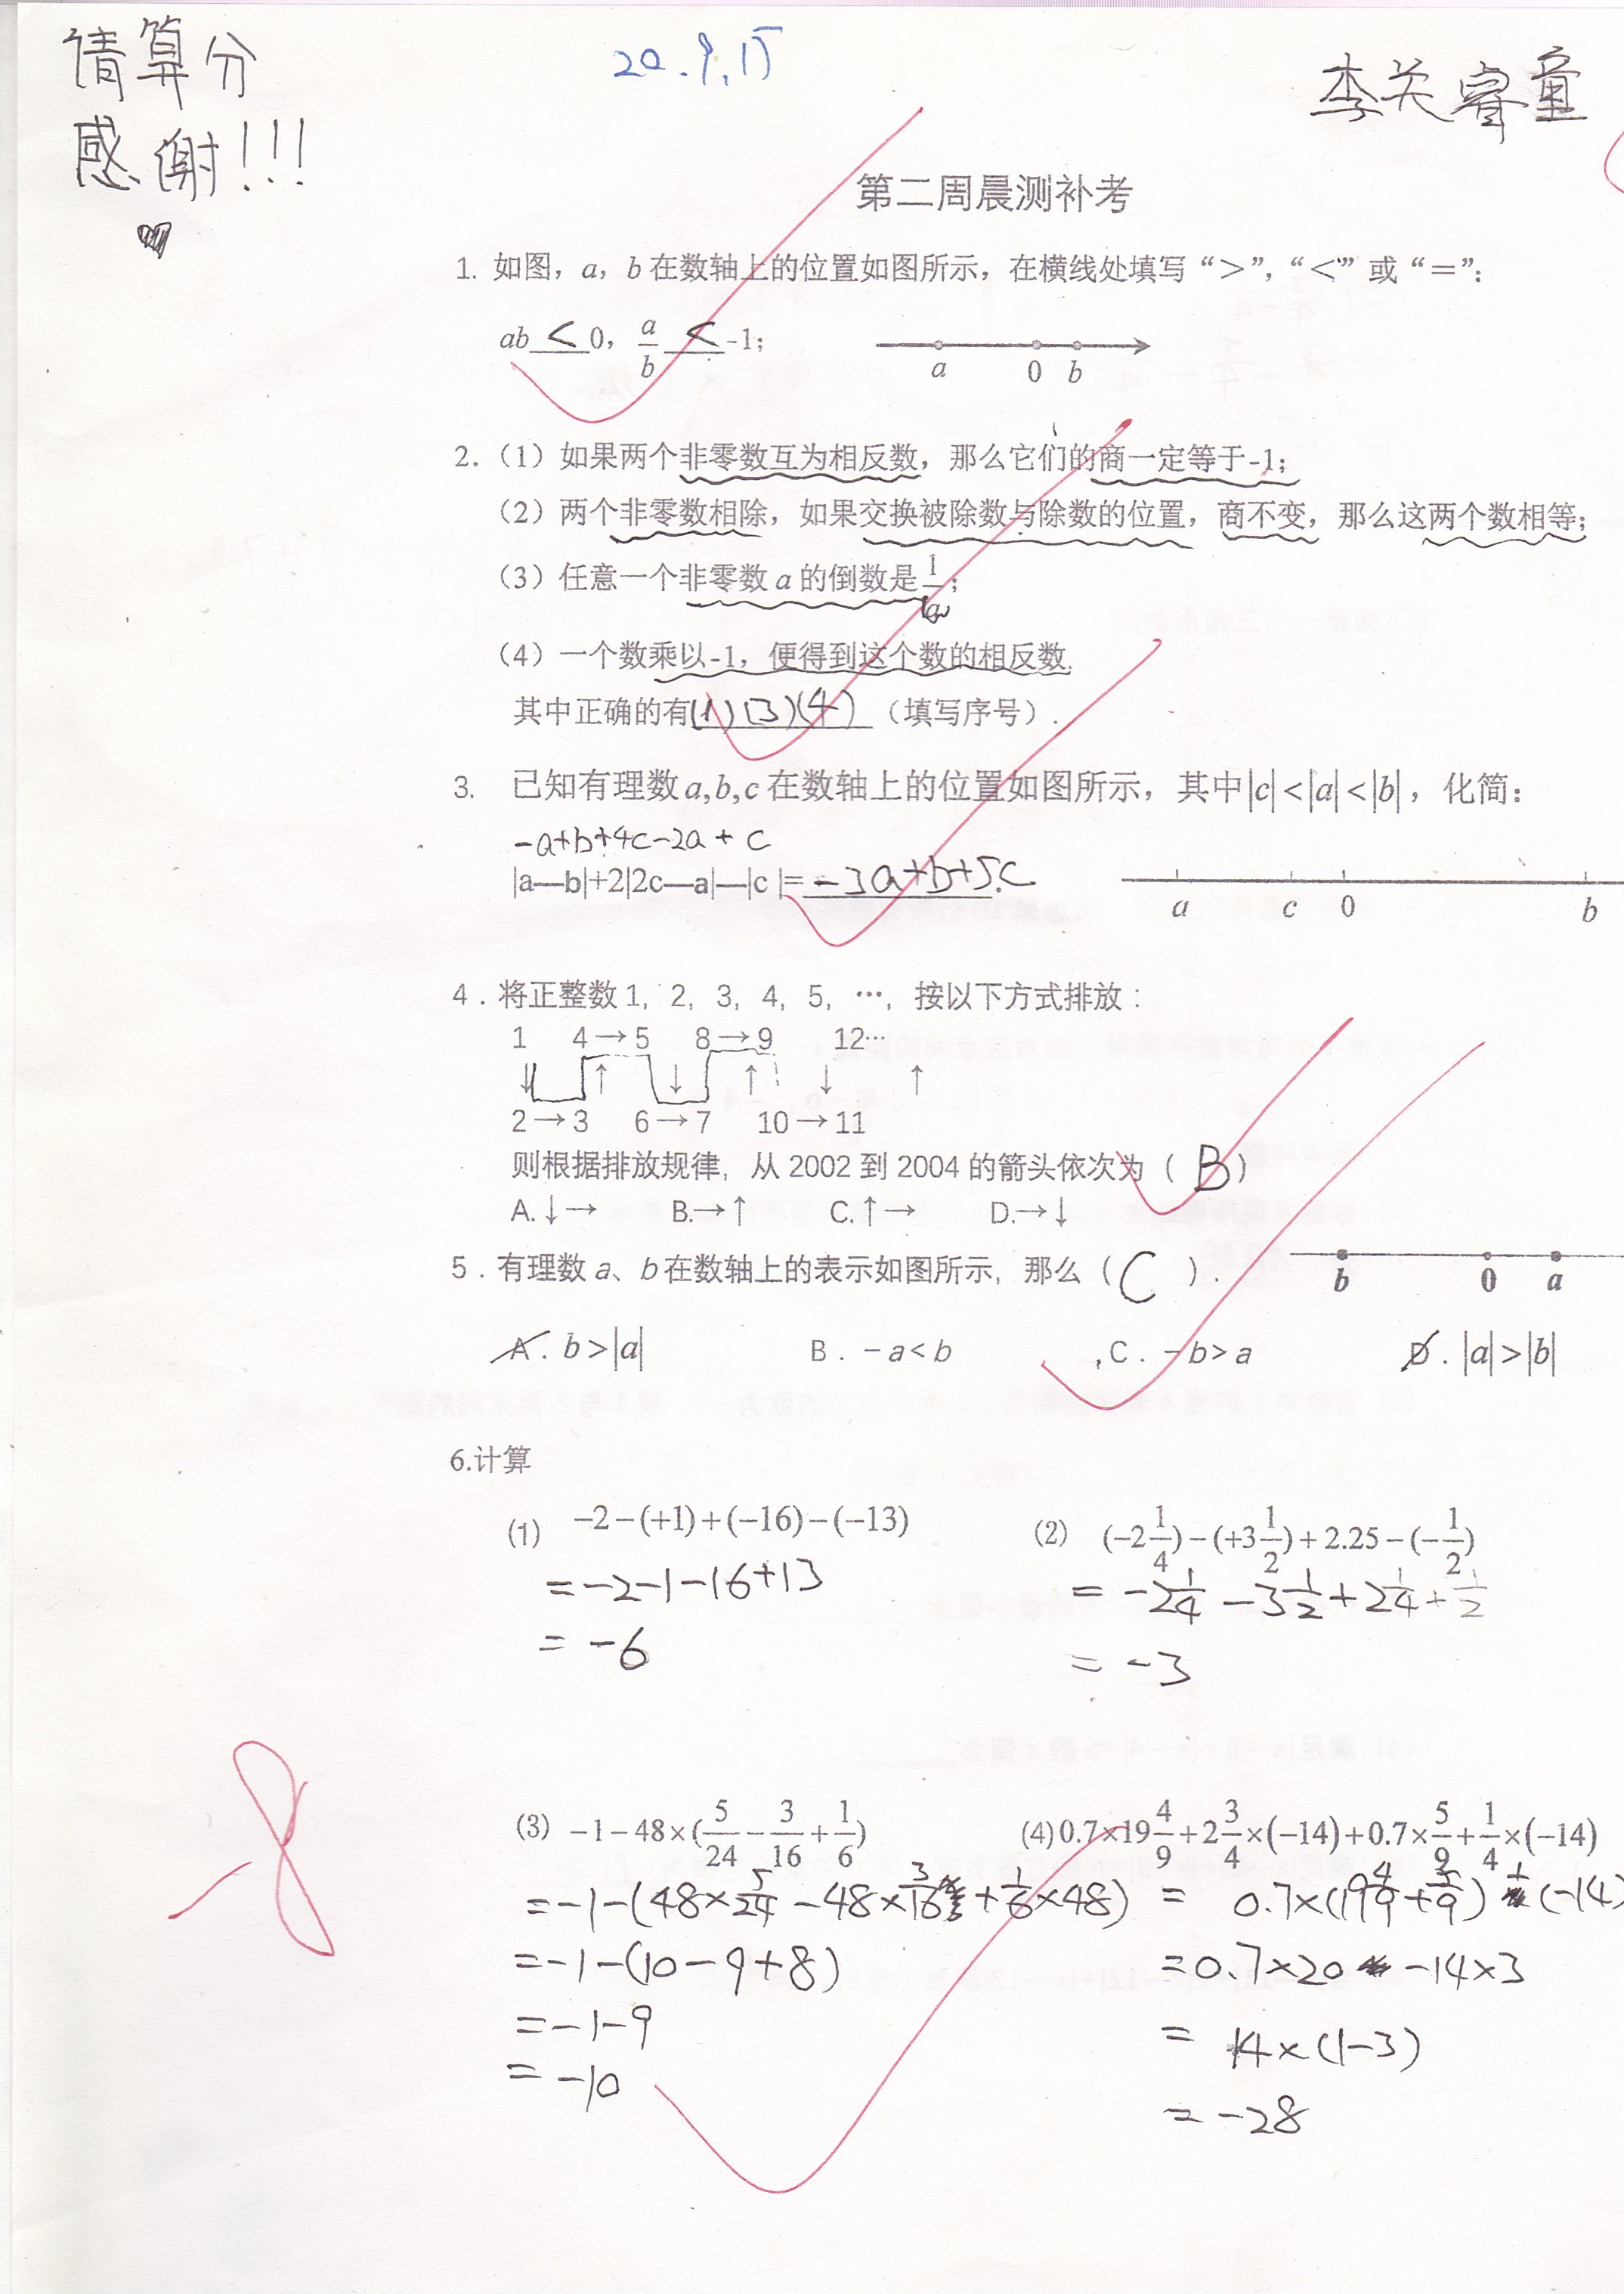 请算分
感谢!!!
20.9.15
李关睿童
第二周晨测补考
1. 如图，a，b 在数轴上的位置如图所示，在横线处填写“>”，“<”或“=”：
ab < 0， a/b < -1；
a 0 b
2.（1）如果两个非零数互为相反数，那么它们的商一定等于-1；
（2）两个非零数相除，如果交换被除数与除数的位置，商不变，那么这两个数相等；
（3）任意一个非零数 a 的倒数是 1/a；
（4）一个数乘以-1，便得到这个数的相反数.
其中正确的有(1)(3)(4)（填写序号）.
3. 已知有理数 a,b,c 在数轴上的位置如图所示，其中|c|<|a|<|b|，化简：
-a+b+4c-2a+c
|a—b|+2|2c—a|—|c|= -3a+b+5c
a c 0 b
4．将正整数 1，2，3，4，5，…，按以下方式排放：
1 4→5 8→9 12…
↓ ↑ ↓ ↑ ↓ ↑
2→3 6→7 10→11
则根据排放规律，从 2002 到 2004 的箭头依次为（ B ）
A.↓→ B.→↑ C.↑→ D.→↓
5．有理数 a、b 在数轴上的表示如图所示，那么（ C ）.
b 0 a
A．b>|a| B．-a<b C．-b>a D．|a|>|b|
6.计算
(1) -2-(+1)+(-16)-(-13) (2) (-2 1/4)-(+3 1/2)+2.25-(-1/2)
=-2-1-16+13 = -2 1/4 -3 1/2 +2 1/4 + 1/2
= -6 = -3
(3) -1-48×(5/24-3/16+1/6) (4) 0.7×19 4/9+2 3/4×(-14)+0.7×5/9+1/4×(-14)
=-1-(48×5/24-48×3/16+1/6×48) = 0.7×(19 4/9+5/9) + (-14)
=-1-(10-9+8) =0.7×20 -14×3
=-1-9 = 14×(1-3)
= -10 = -28
-8